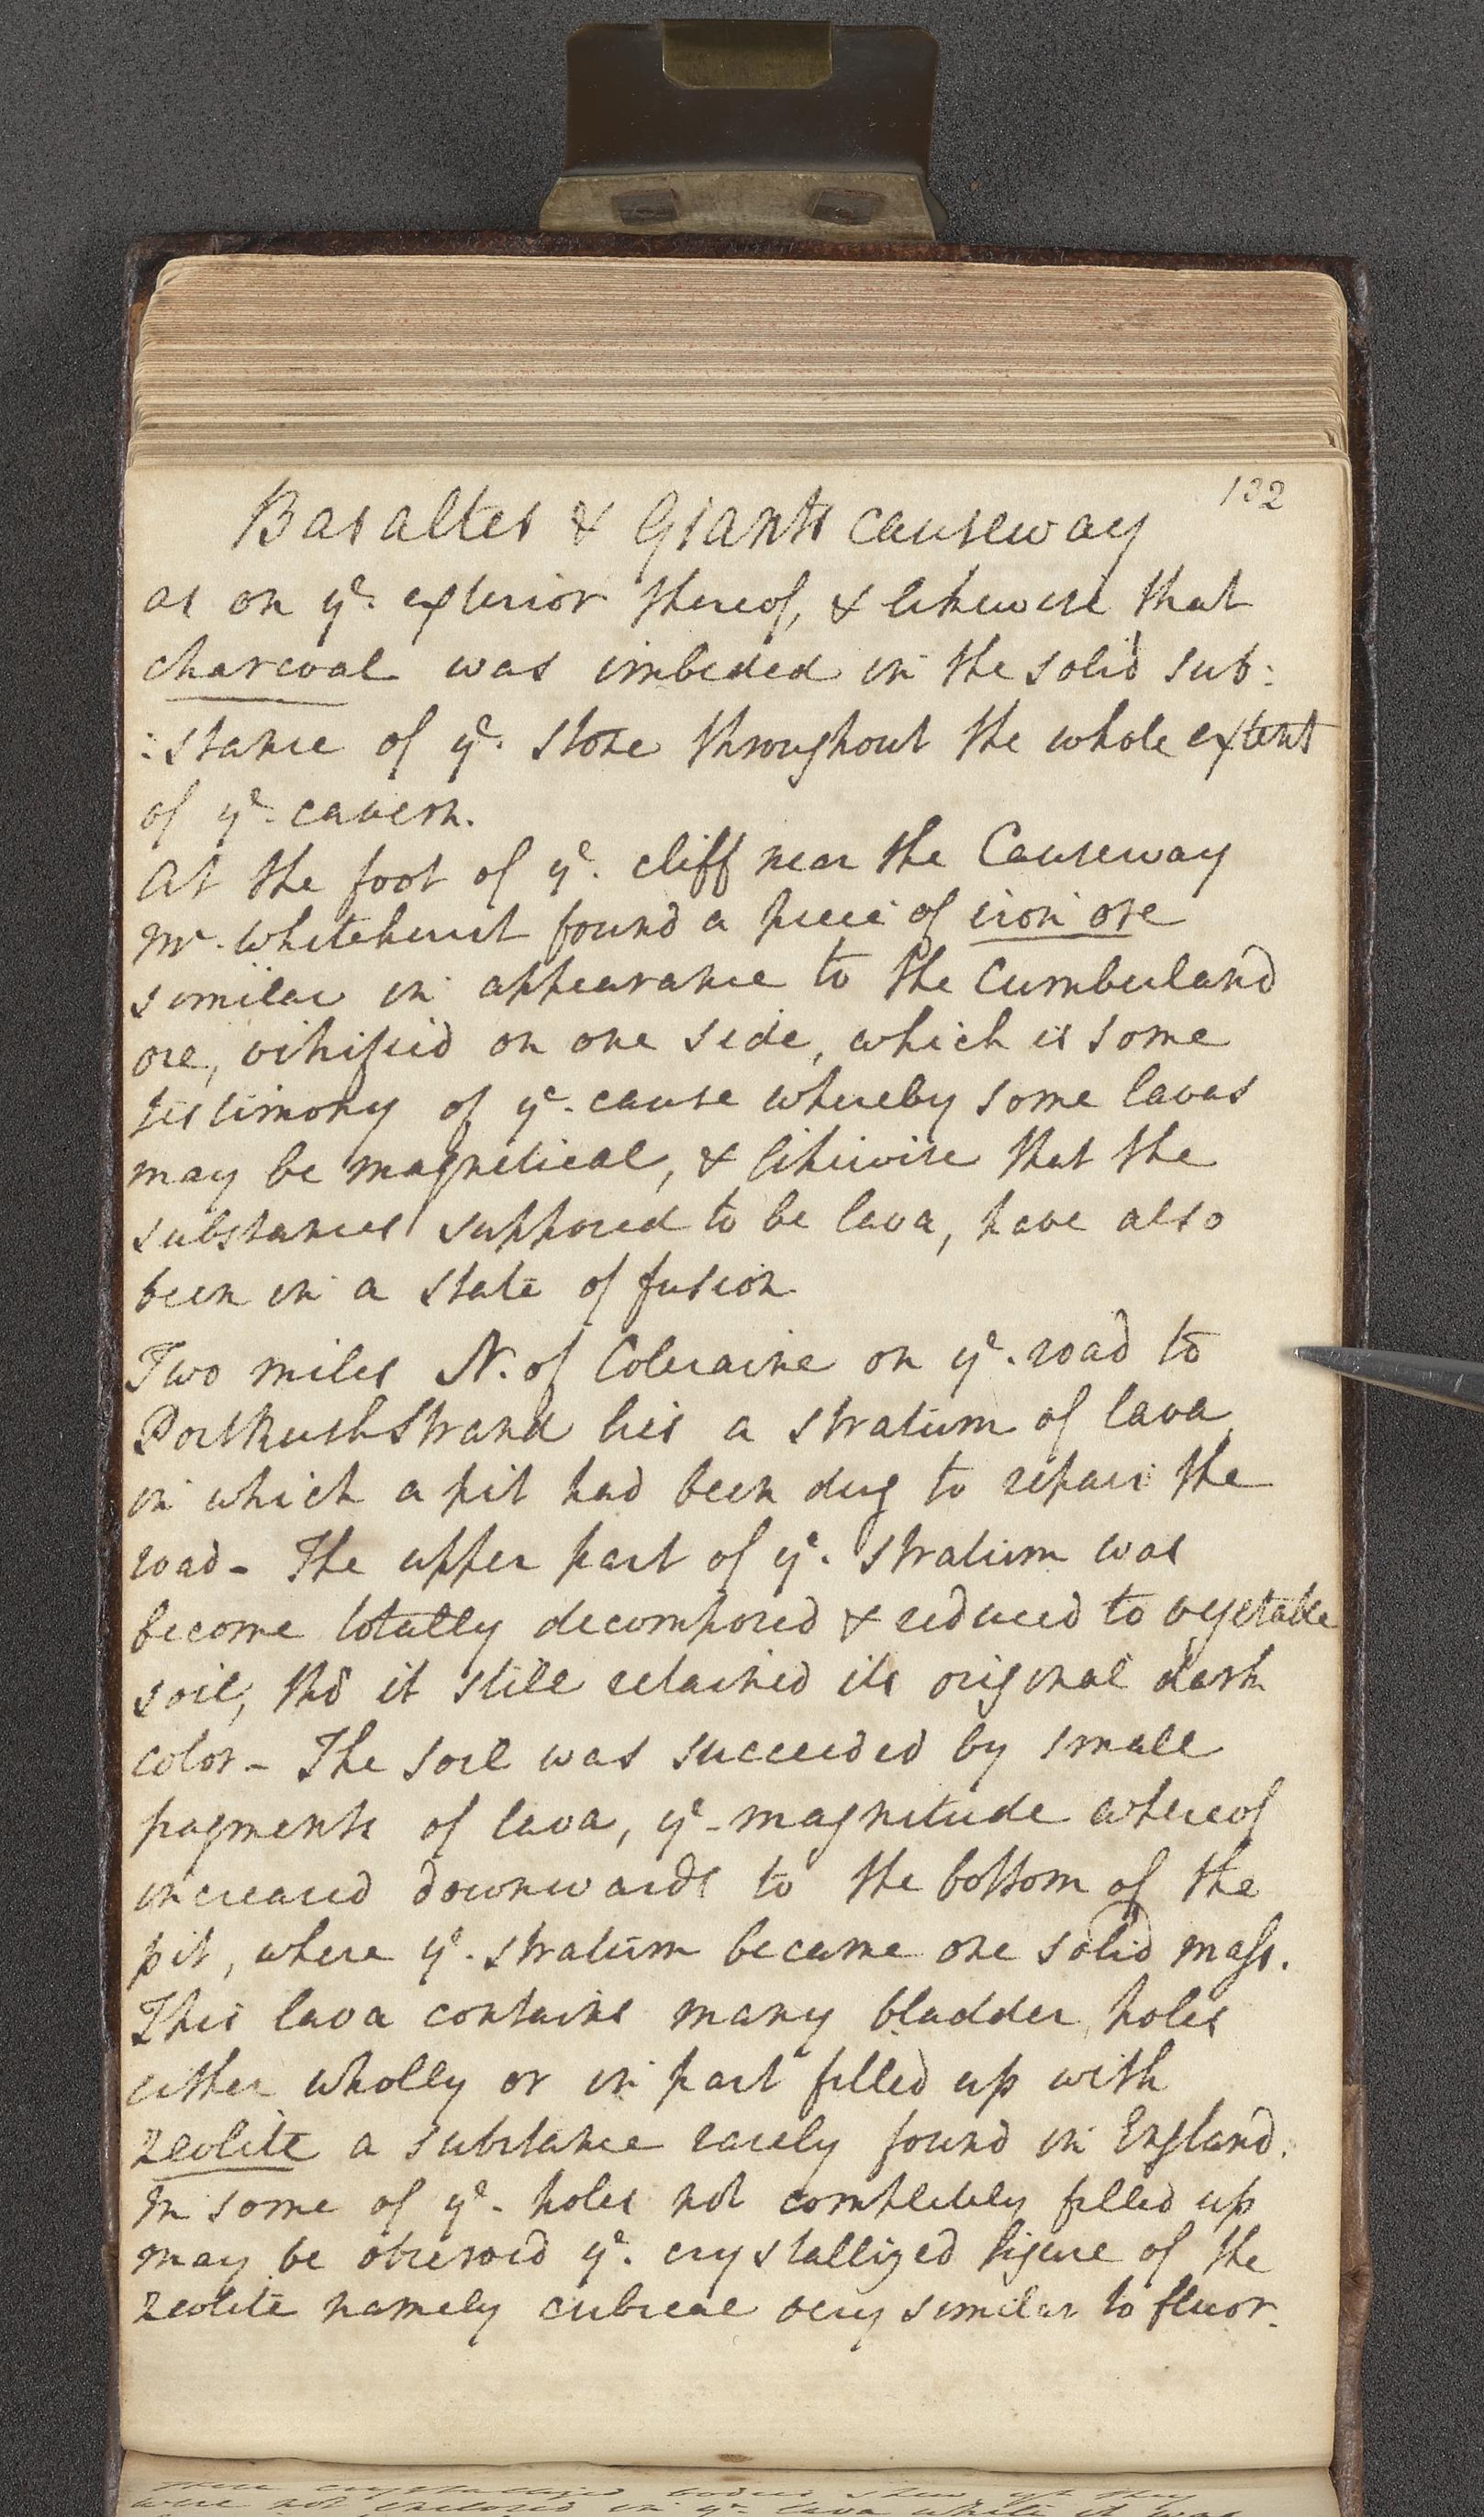 132
Basaltes & Giants causeway
as on ye. exterior thereof, & likewise that
charcoal was imbeded in the solid sub:
:stance of ye. stone throughout the whole extent
of ye. cavern.
At the foot of ye. cliff near the Causeway
Mr. Whitehurst found a piece of iron ore
similar in appearance to the Cumberland
ore, vitrified on one side, which is some
testimony of ye. cause whereby some lavas
may be magnetical, & likewise that the
substances supposed to be lava, have also
been in a state of fusion
Two miles N. of Coleraine on ye. road to
PortRush Strand lies a stratum of lava
in which a pit had been dug to repair the
road - The upper part of ye. stratum was
become totally decomposed & reduced to vegetable
soil, tho it still retained its original dark
color - The soil was succeeded by small
fragments of lava, ye. magnitude whereof
increased downwards to the bottom of the
pit, where ye. stratum became one solid mass.
This lava contains many bladder holes
either wholly or in part filled up with
zeolite a substance rarely found in England.
In some of ye. holes not completely filled up
may be observed ye. crystallized figure of the
zeolite namely cubical very similar to fluor.